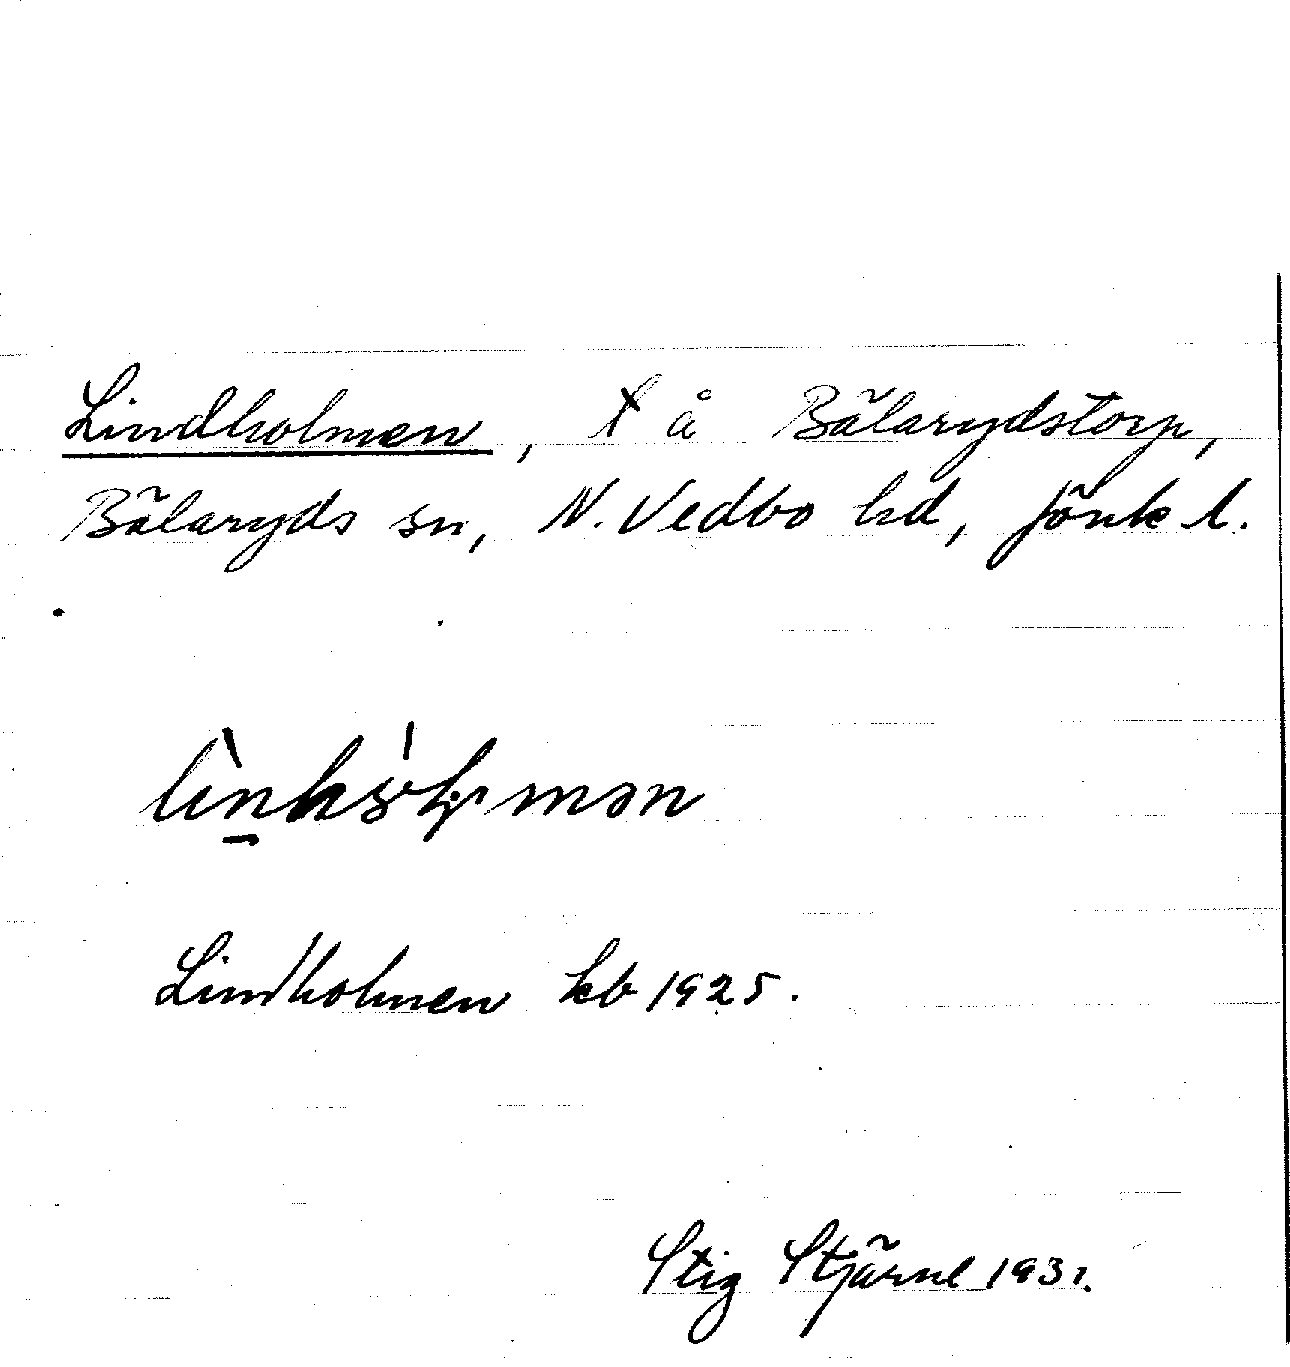 Lindholmen, l å Bälarydstorp,
Bälaryds sn, N. Vedbo hd, Jönk l.
Lindholmen kb 1925.
Stig Stjärne 1931.